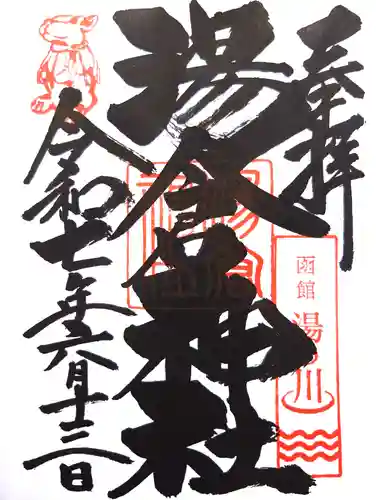 奉拝
函館
湯の川
湯倉神社
令和七年六月十三日